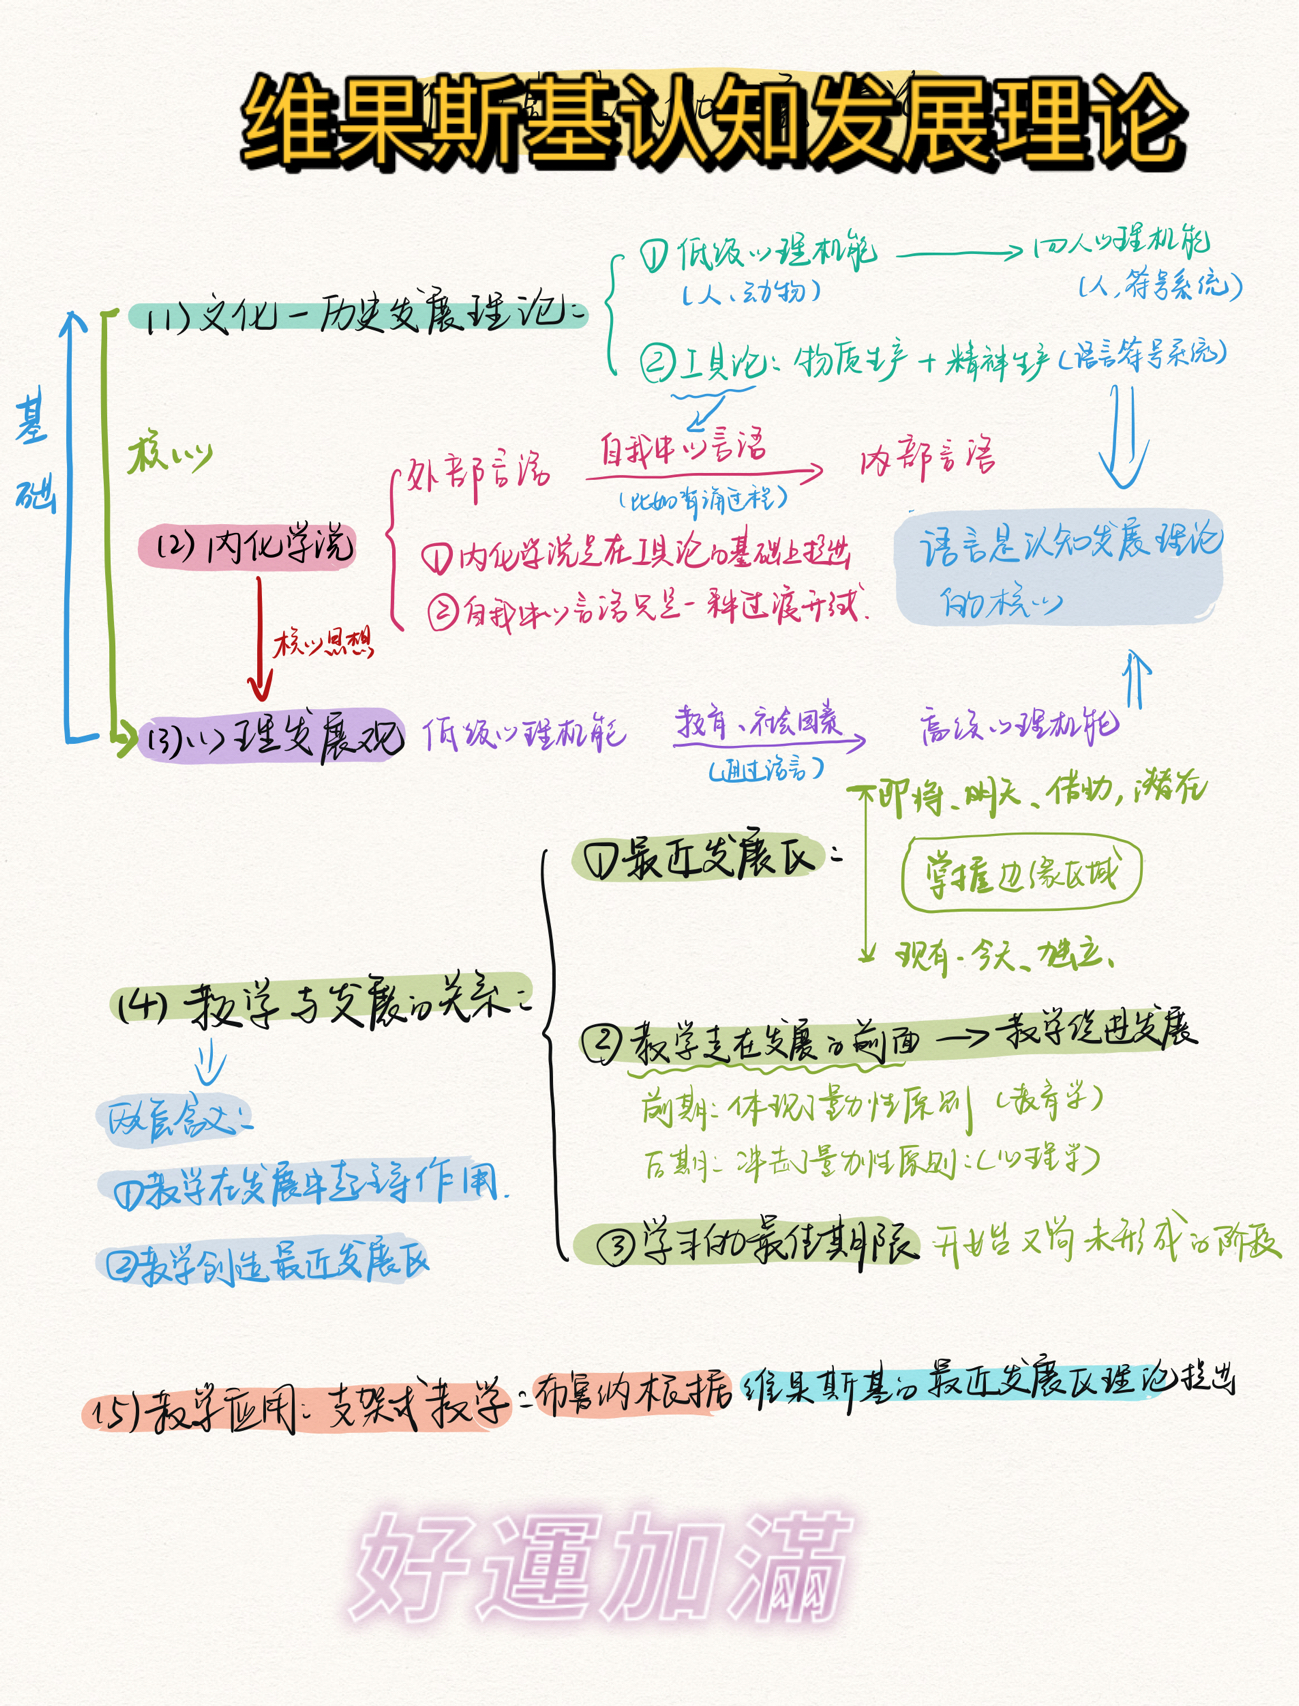 维果斯基认知发展理论
(1)文化一历史发展理论:
①低级心理机能
(人、动物)
人心理机能
(人,符号系统)
②工具论:物质生产+精神生产(语言符号系统)
基础
核心
(2)内化学说
外部言语
自我中心言语
内部言语
①内化学说是在工具论的基础上提出
②自我中心言语只是一种过渡形式.
语言是认知发展理论
的核心
核心思想
(3)心理发展观
低级心理机能
教育、社会因素
(通过语言)
高级心理机能
①最近发展区:
即将、明天、借助,潜在
掌握边缘区域
现有.今天、独立、
(4)教学与发展的关系:
②教学走在发展的前面→教学促进发展
前期:体现了量力性原则(教育学)
后期:冲击了量力性原则:(心理学)
③学习的最佳期限 开始又尚未形成的阶段
两层含义:
①教学在发展中起主导作用.
②教学创造最近发展区
(5)教学应用:支架式教学:布鲁纳根据维果斯基的最近发展区理论提出
好運加滿